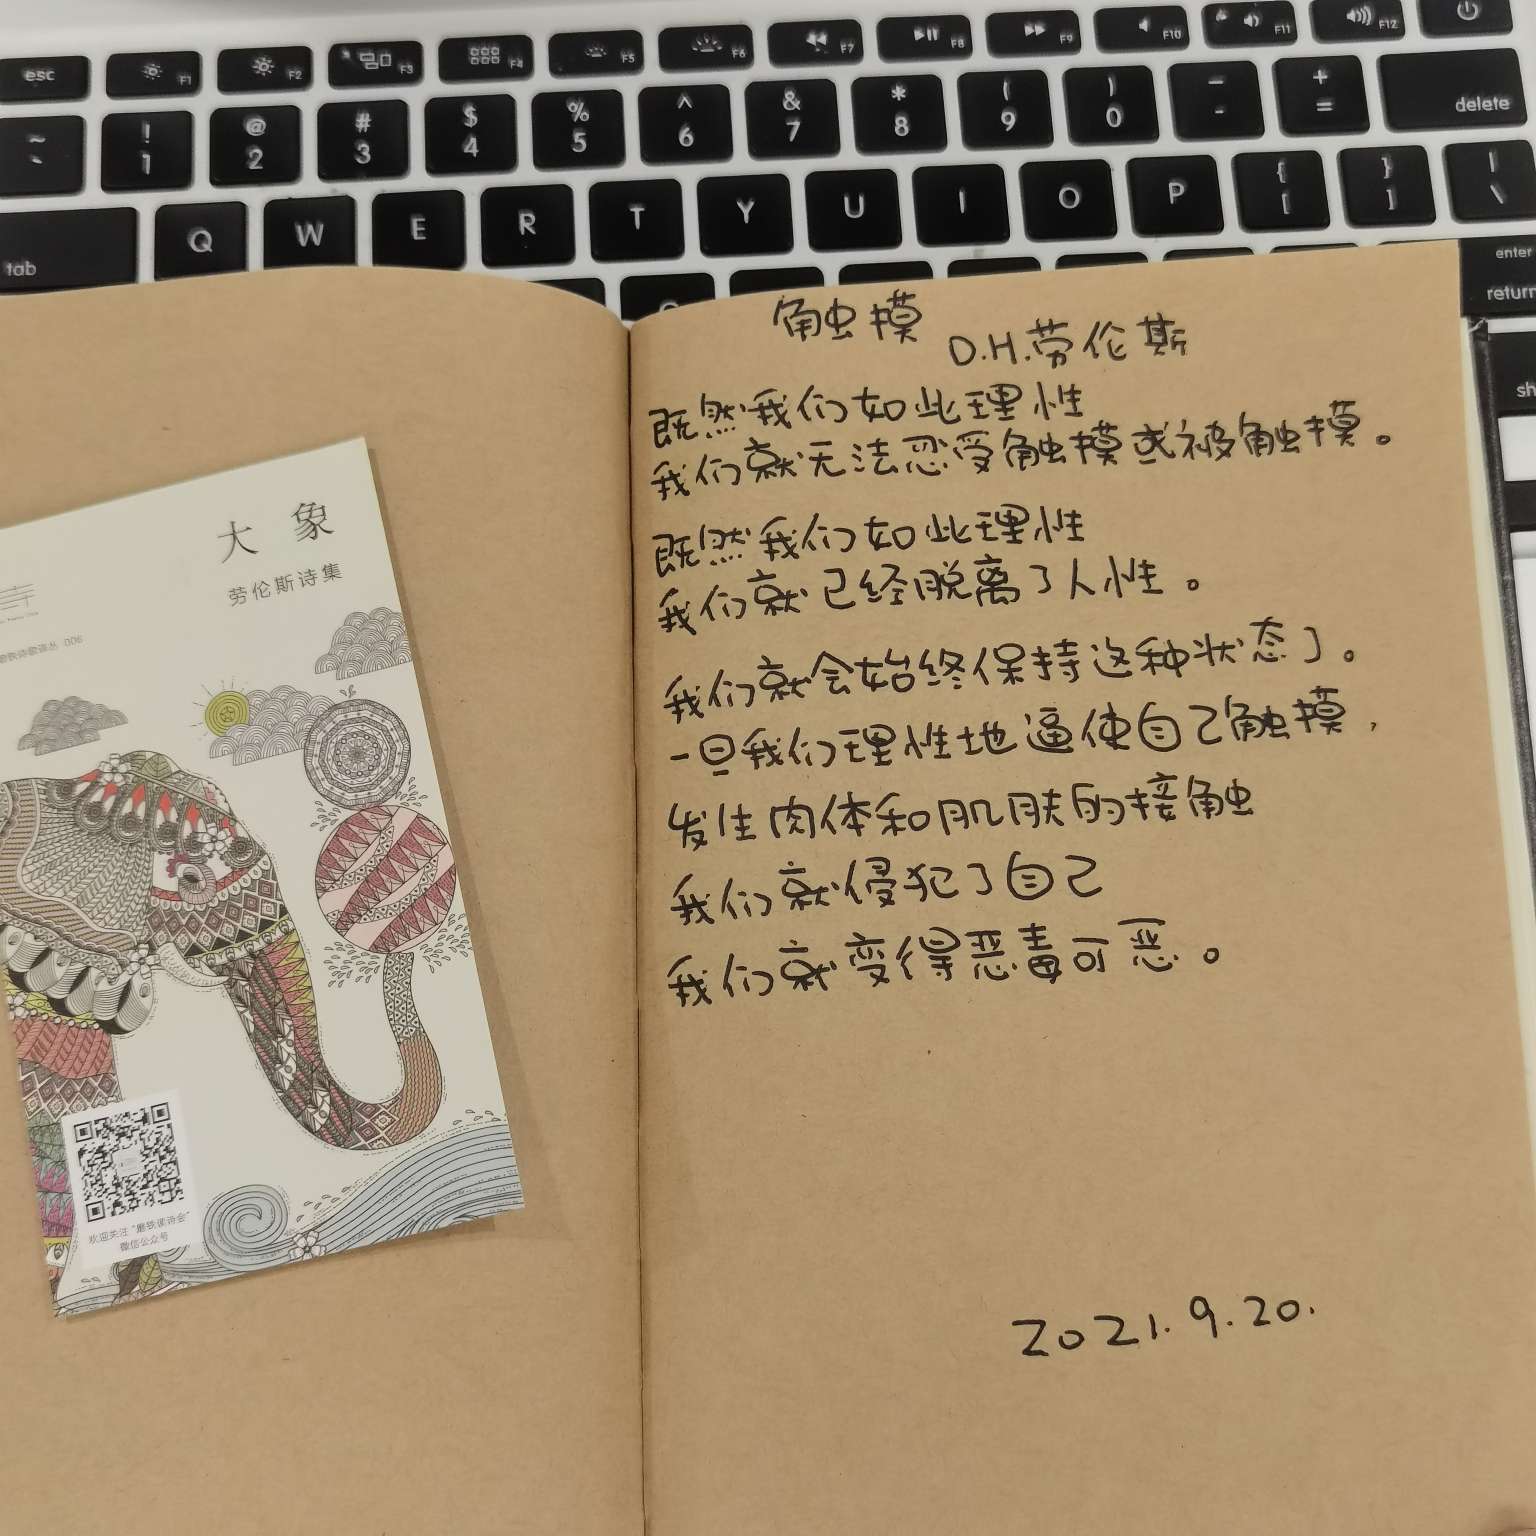 esc F1 F2 F3 F4 F5 F6 F7 F8 F9 F10 F11 F12
~ ` ! 1 @ 2 # 3 $ 4 % 5 ^ 6 & 7 * 8 ( 9 ) 0 — - + = delete
tab Q W E R T Y U I O P { [ } ] | \
enter
return
sh
触摸
D.H.劳伦斯
既然我们如此理性
我们就无法忍受触摸或被触摸。
既然我们如此理性
我们就已经脱离了人性。
我们就会始终保持这种状态了。
一旦我们理性地逼使自己触摸,
发生肉体和肌肤的接触
我们就侵犯了自己
我们就变得恶毒可恶。
2021.9.20.
大象
劳伦斯诗集
磨铁诗歌译丛 006
欢迎关注“磨铁读诗会”
微信公众号